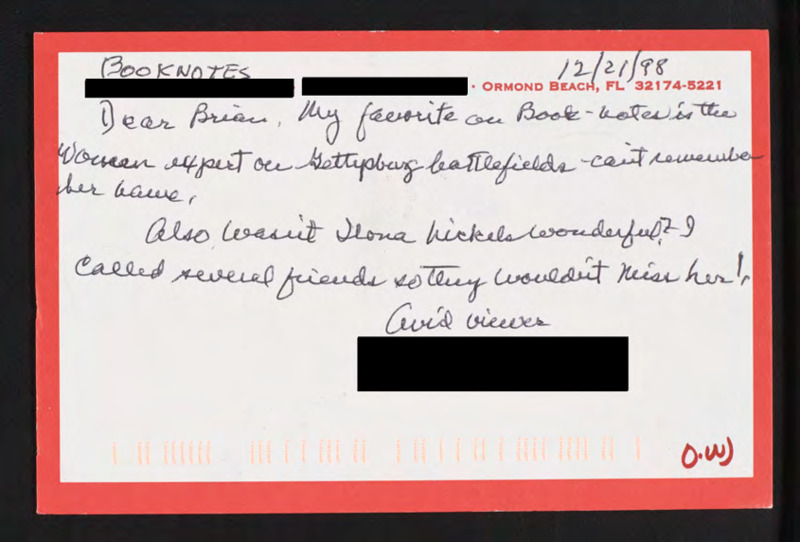 BOOKNOTES 12/21/98
· ORMOND BEACH, FL 32174-5221
Dear Brian, My favorite on Book-notes is the
Woman expert on Gettysburg battlefields - can't remember
her name.
Also, wasn't Ilona Nickels wonderful? I
called several friends so they wouldn't miss her!
Avid viewer
O.W)